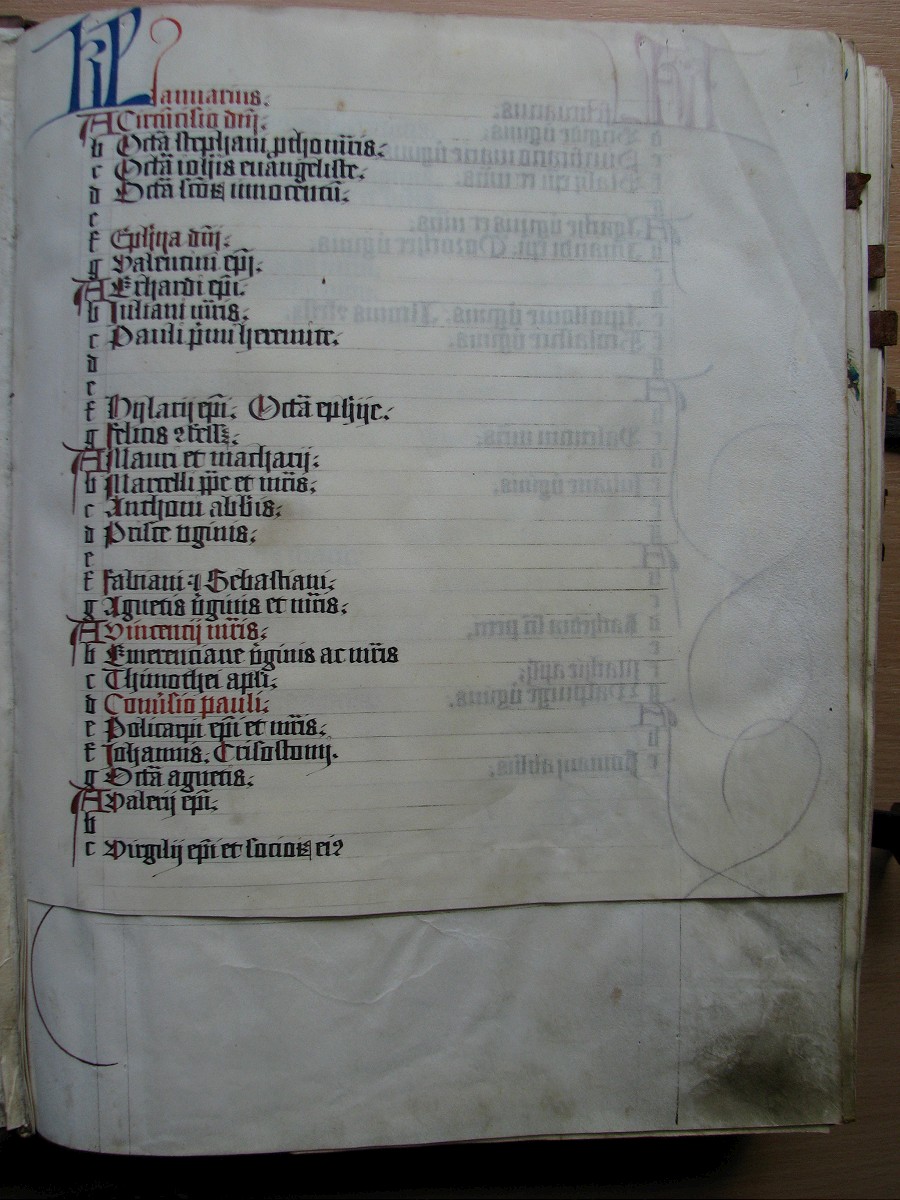 KL Januarius.
A Circūcisio dn̄i.
b Octā stephani ꝓthom̄ris.
c Octā ioh̄is euangeliste.
d Octā scōꝝ innocentū.
e
f Eph̄ya dn̄i.
g Valentini ep̄i.
A Erhardi ep̄i.
b Juliani m̄ris.
c Pauli p̄mi heremite.
d
e
f Hylarij ep̄i. Octā eph̄ye.
g felicis
A Mauri et macharij.
b Marcelli pp̄e et m̄ris.
c Anthonii abb̄is.
d Prisce v̄ginis.
e
f fabiani ⁊ Sebastiani.
g Agnetis v̄ginis et m̄ris.
A Vincencij m̄ris.
b Emerenciane v̄ginis ac m̄ris
c Thimothei apl̄i.
d Conu̓sio pauli.
e Policarpi ep̄i et m̄ris.
f Johannis. Crisostomj.
g Octā agnetis.
A Valerij ep̄i.
b
c Virgilij ep̄i et socioꝝ ei?